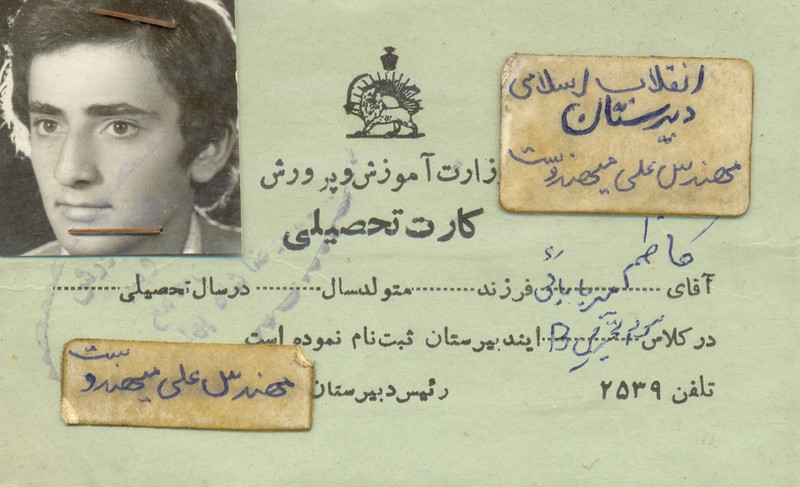 انقلاب اسلامی
دبیرستان
مهندس علی میهندوست
وزارت آموزش و پرورش
کارت تحصیلی
آقای کاظم میربابائی فرزند متولد سال در سال تحصیلی
در کلاس B این دبیرستان ثبت نام نموده است
تلفن ۲۵۳۹ رئیس دبیرستان
مهندس علی میهندوست